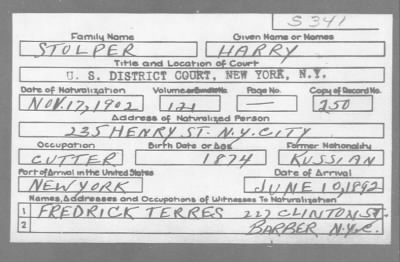 S 341
Family Name Given Name or Names
STOLPER HARRY
Title and Location of Court
U. S. DISTRICT COURT, NEW YORK, N.Y.
Date of Naturalization Volume or Bundle No. Page No. Copy of Record No.
NOV. 17, 1902 121 — 250
Address of Naturalized Person
235 HENRY ST. N.Y. CITY
Occupation Birth Date or Age Former Nationality
CUTTER 1874 RUSSIAN
Port of Arrival in the United States Date of Arrival
NEW YORK JUNE 10, 1892
Names, Addresses and Occupations of Witnesses To Naturalization
1 FREDRICK TERRES 227 CLINTON ST.
2 BARBER N.Y.C.